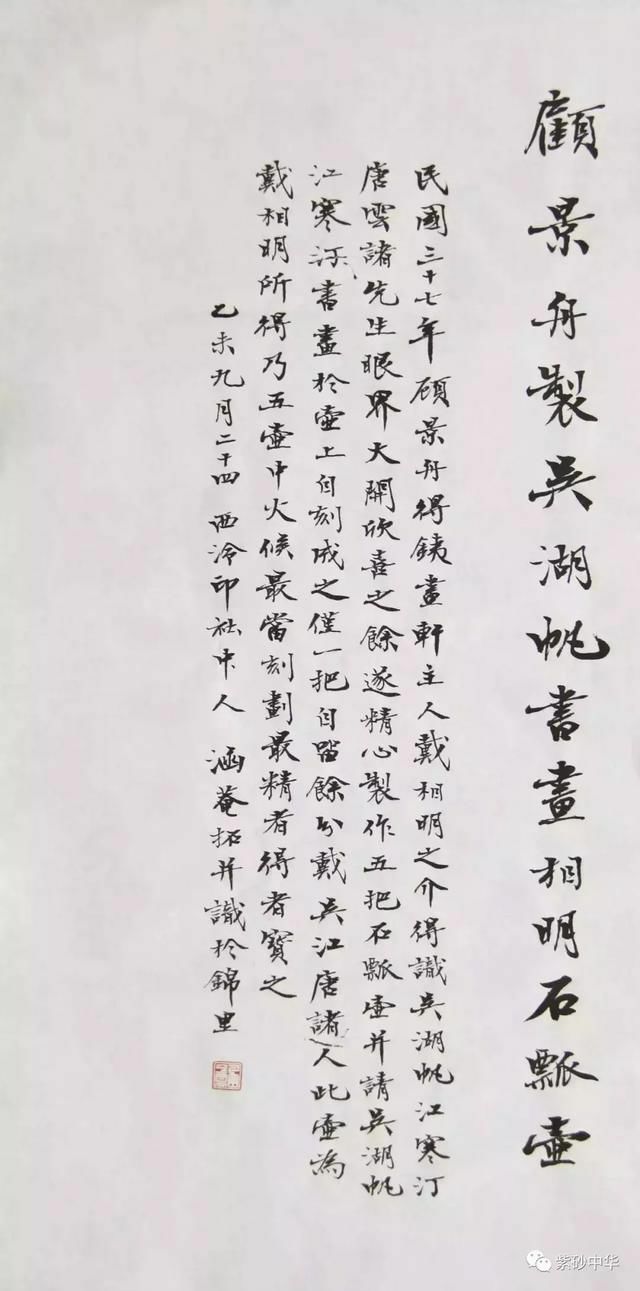 顧景舟製吳湖帆書畫相明石瓢壷
民國三十七年顾景舟得銕畫軒主人戴相明之介得識吳湖帆江寒汀
唐雲諸先生眼界大開欣喜之餘遂精心製作五把石瓢壷并請吳湖帆
江寒汀書畫於壷上自刻成之僅一把自留餘分戴吳江唐諸人此壷為
戴相明所得乃五壷中火候最當刻劃最精者得者寳之
乙未九月二十四 西泠印社中人 涵菴拓并識於錦里
紫砂中华